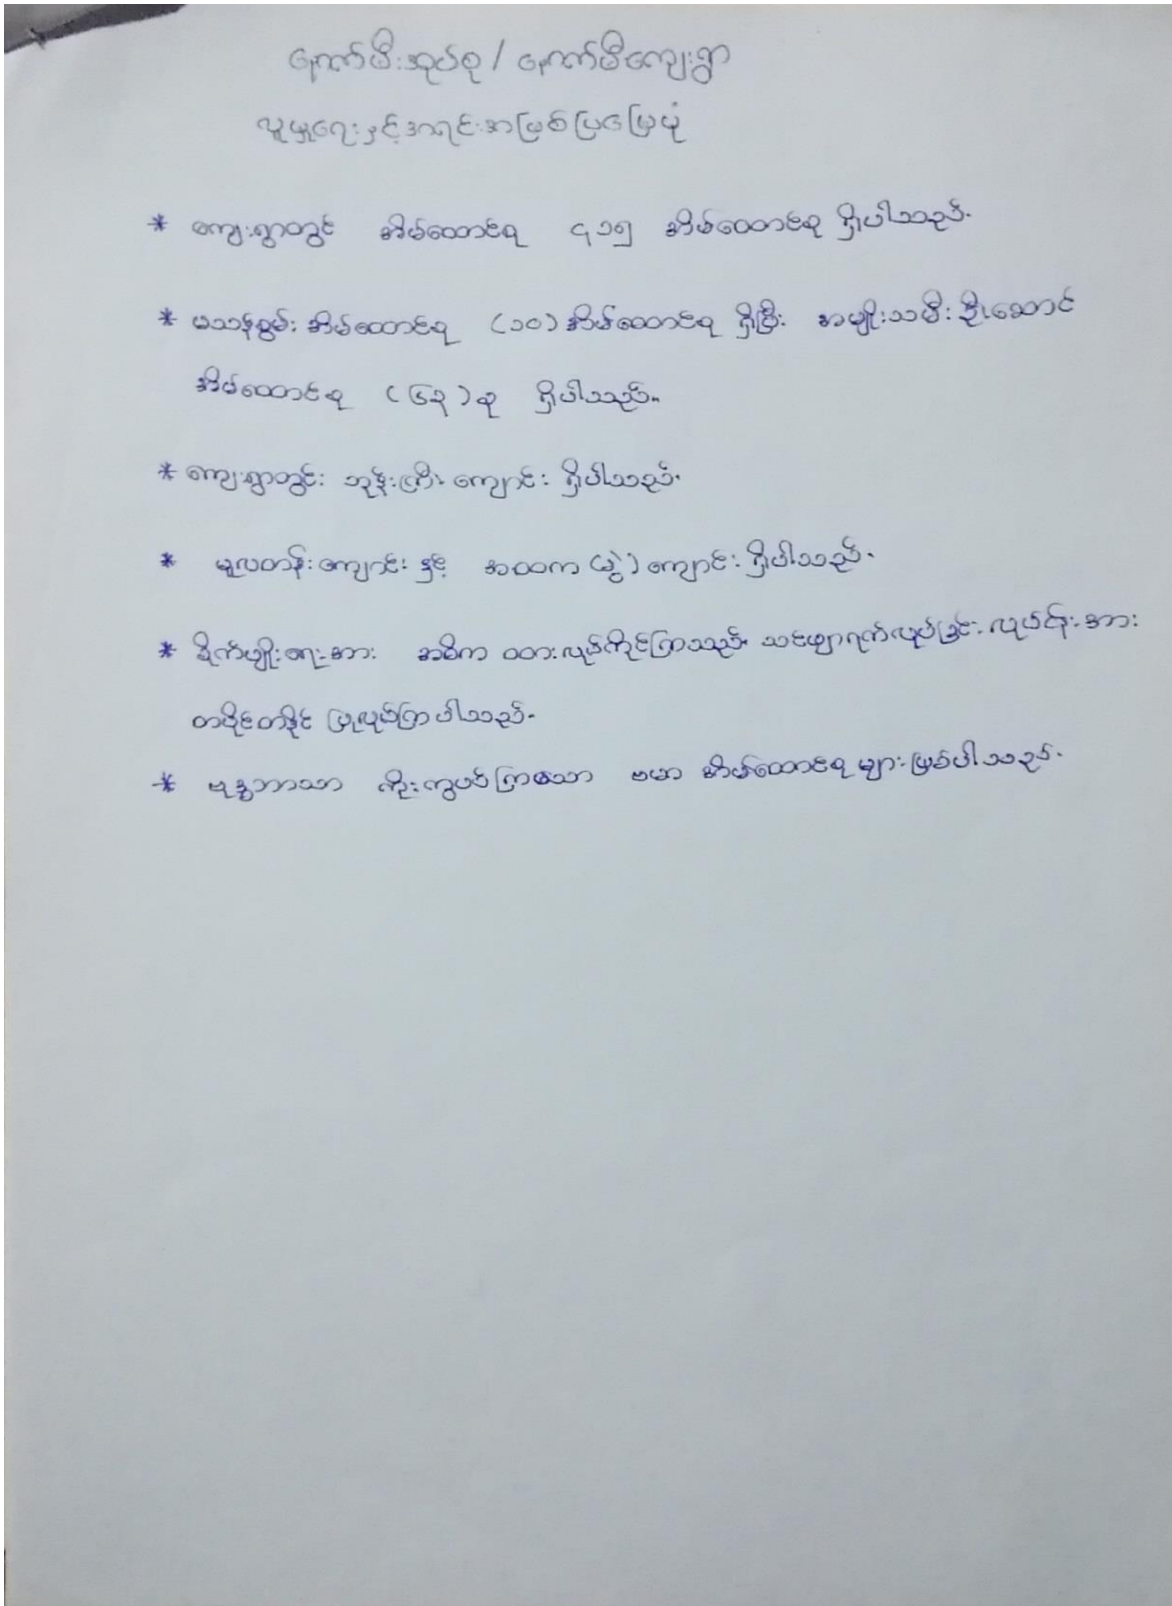 နောက်မီးအုပ်စု / နောက်မီကျေးရွာ
လူမှုရေးနှင့်အရင်းအမြစ်ပြမြေပုံ
* ကျေးရွာတွင် အိမ်ထောင်စု ၄၁၅ အိမ်ထောင်စု ရှိပါသည်.
* မသန်စွမ်း အိမ်ထောင်စု (၁၀) အိမ်ထောင်စု ရှိပြီး အမျိုးသမီးဦးဆောင်
အိမ်ထောင်စု (၆၃) စု ရှိပါသည်။
* ကျေးရွာတွင်း ဘုန်းကြီး ကျောင်း ရှိပါသည်.
* မူလတန်းကျောင်း နှင့် အထက (ခွဲ) ကျောင်း ရှိပါသည်.
* စိုက်ပျိုးရေးအား အဓိက ထားလုပ်ကိုင်ကြသည်. သင်ဖျာရက်လုပ်ခြင်း လုပ်ငန်းအား
တပိုင်တနိုင် ပြုလုပ်ကြပါသည်.
* ဗုဒ္ဓဘာသာ ကိုးကွယ်ကြသော ဗမာ အိမ်ထောင်စုများဖြစ်ပါသည်.